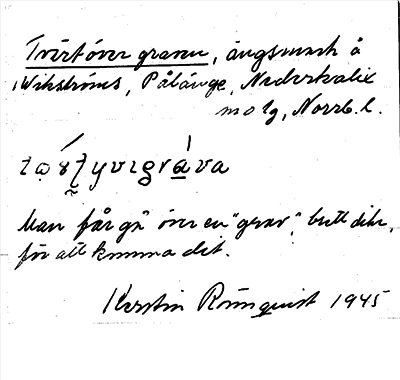 Tvärtöver graven, ängsmark å
Wikströms, Pålänge, Nederkalix
sn o lg, Norrb. l.
Man får gå över en "grav", brett dike,
för att komma det.
Kerstin Rönnquist 1945